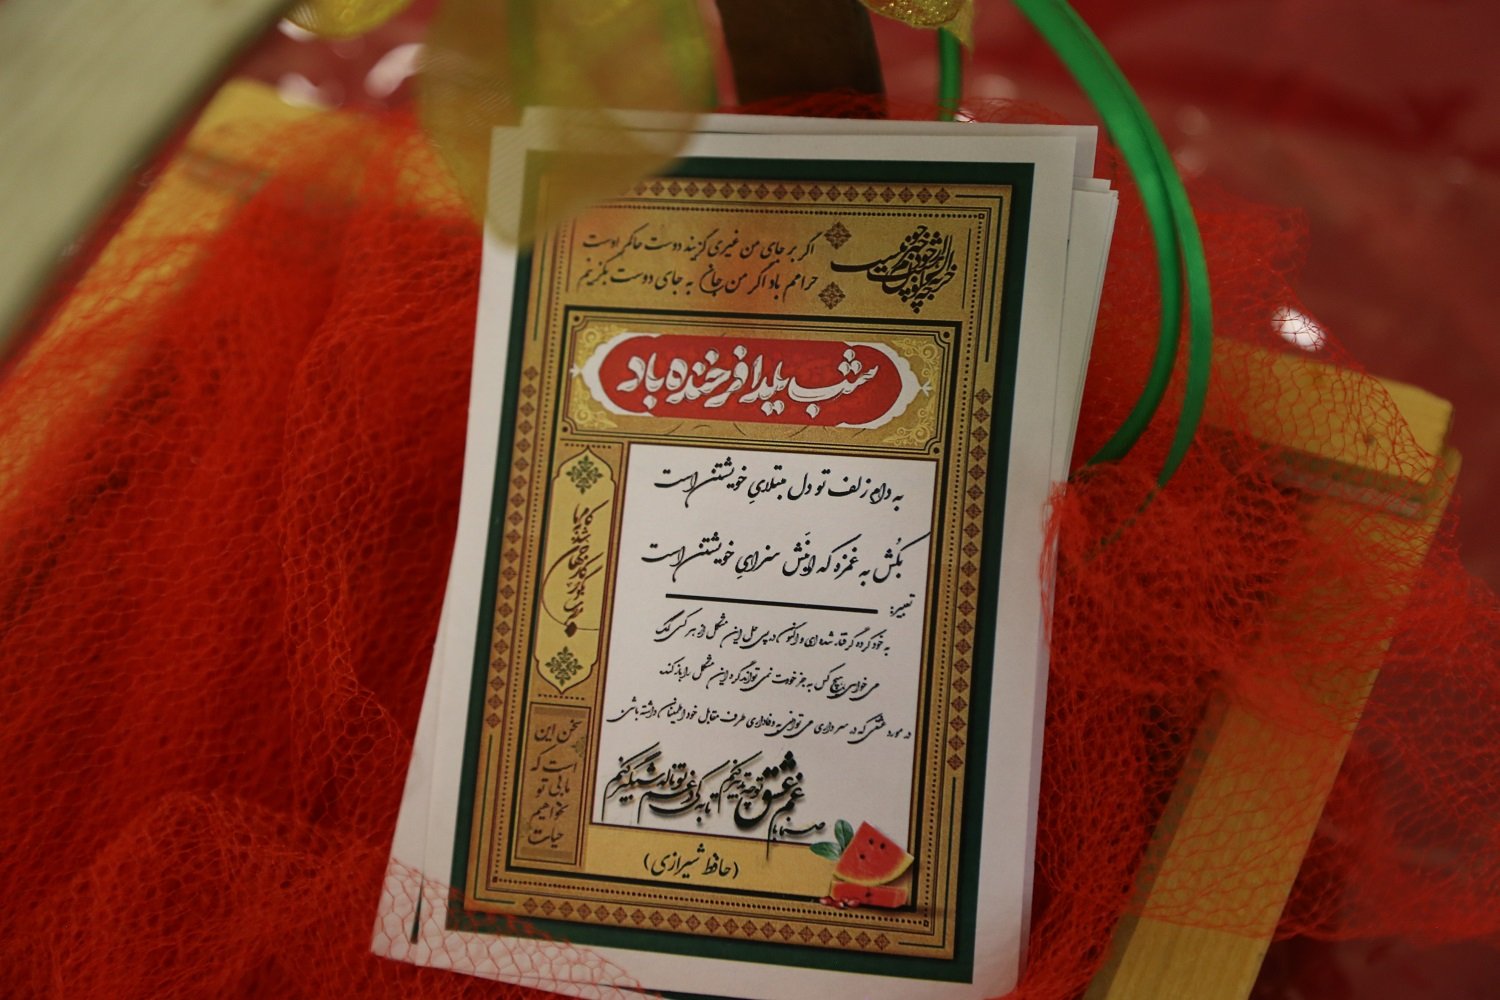 اگر بر جای من غیری گزیند دوست حاکم اوست
حرامم باد اگر من جان به جای دوست بگزینم
شب یلدا فرخنده باد
به دام زلف تو دل مبتلای خویشتن است
بکُش به غمزه که اینَش سزای خویشتن است
تعبیر:
به خود کرده گرفتار شده ای و اکنون در پی حل این مشکل از هر کسی کمک
می خواهی. هیچ کس به جز خودت نمی تواند گره این مشکل را باز کند.
در مورد عشقی که در سر داری می توانی به وفاداری طرف مقابل خود اطمینان داشته باش
صنما با غم عشق تو چه تدبیر کنم
تا به کی در غم تو ناله شبگیر کنم
سخن این
است که
ما بی تو
نخواهیم
حیات
(حافظ شیرازی)